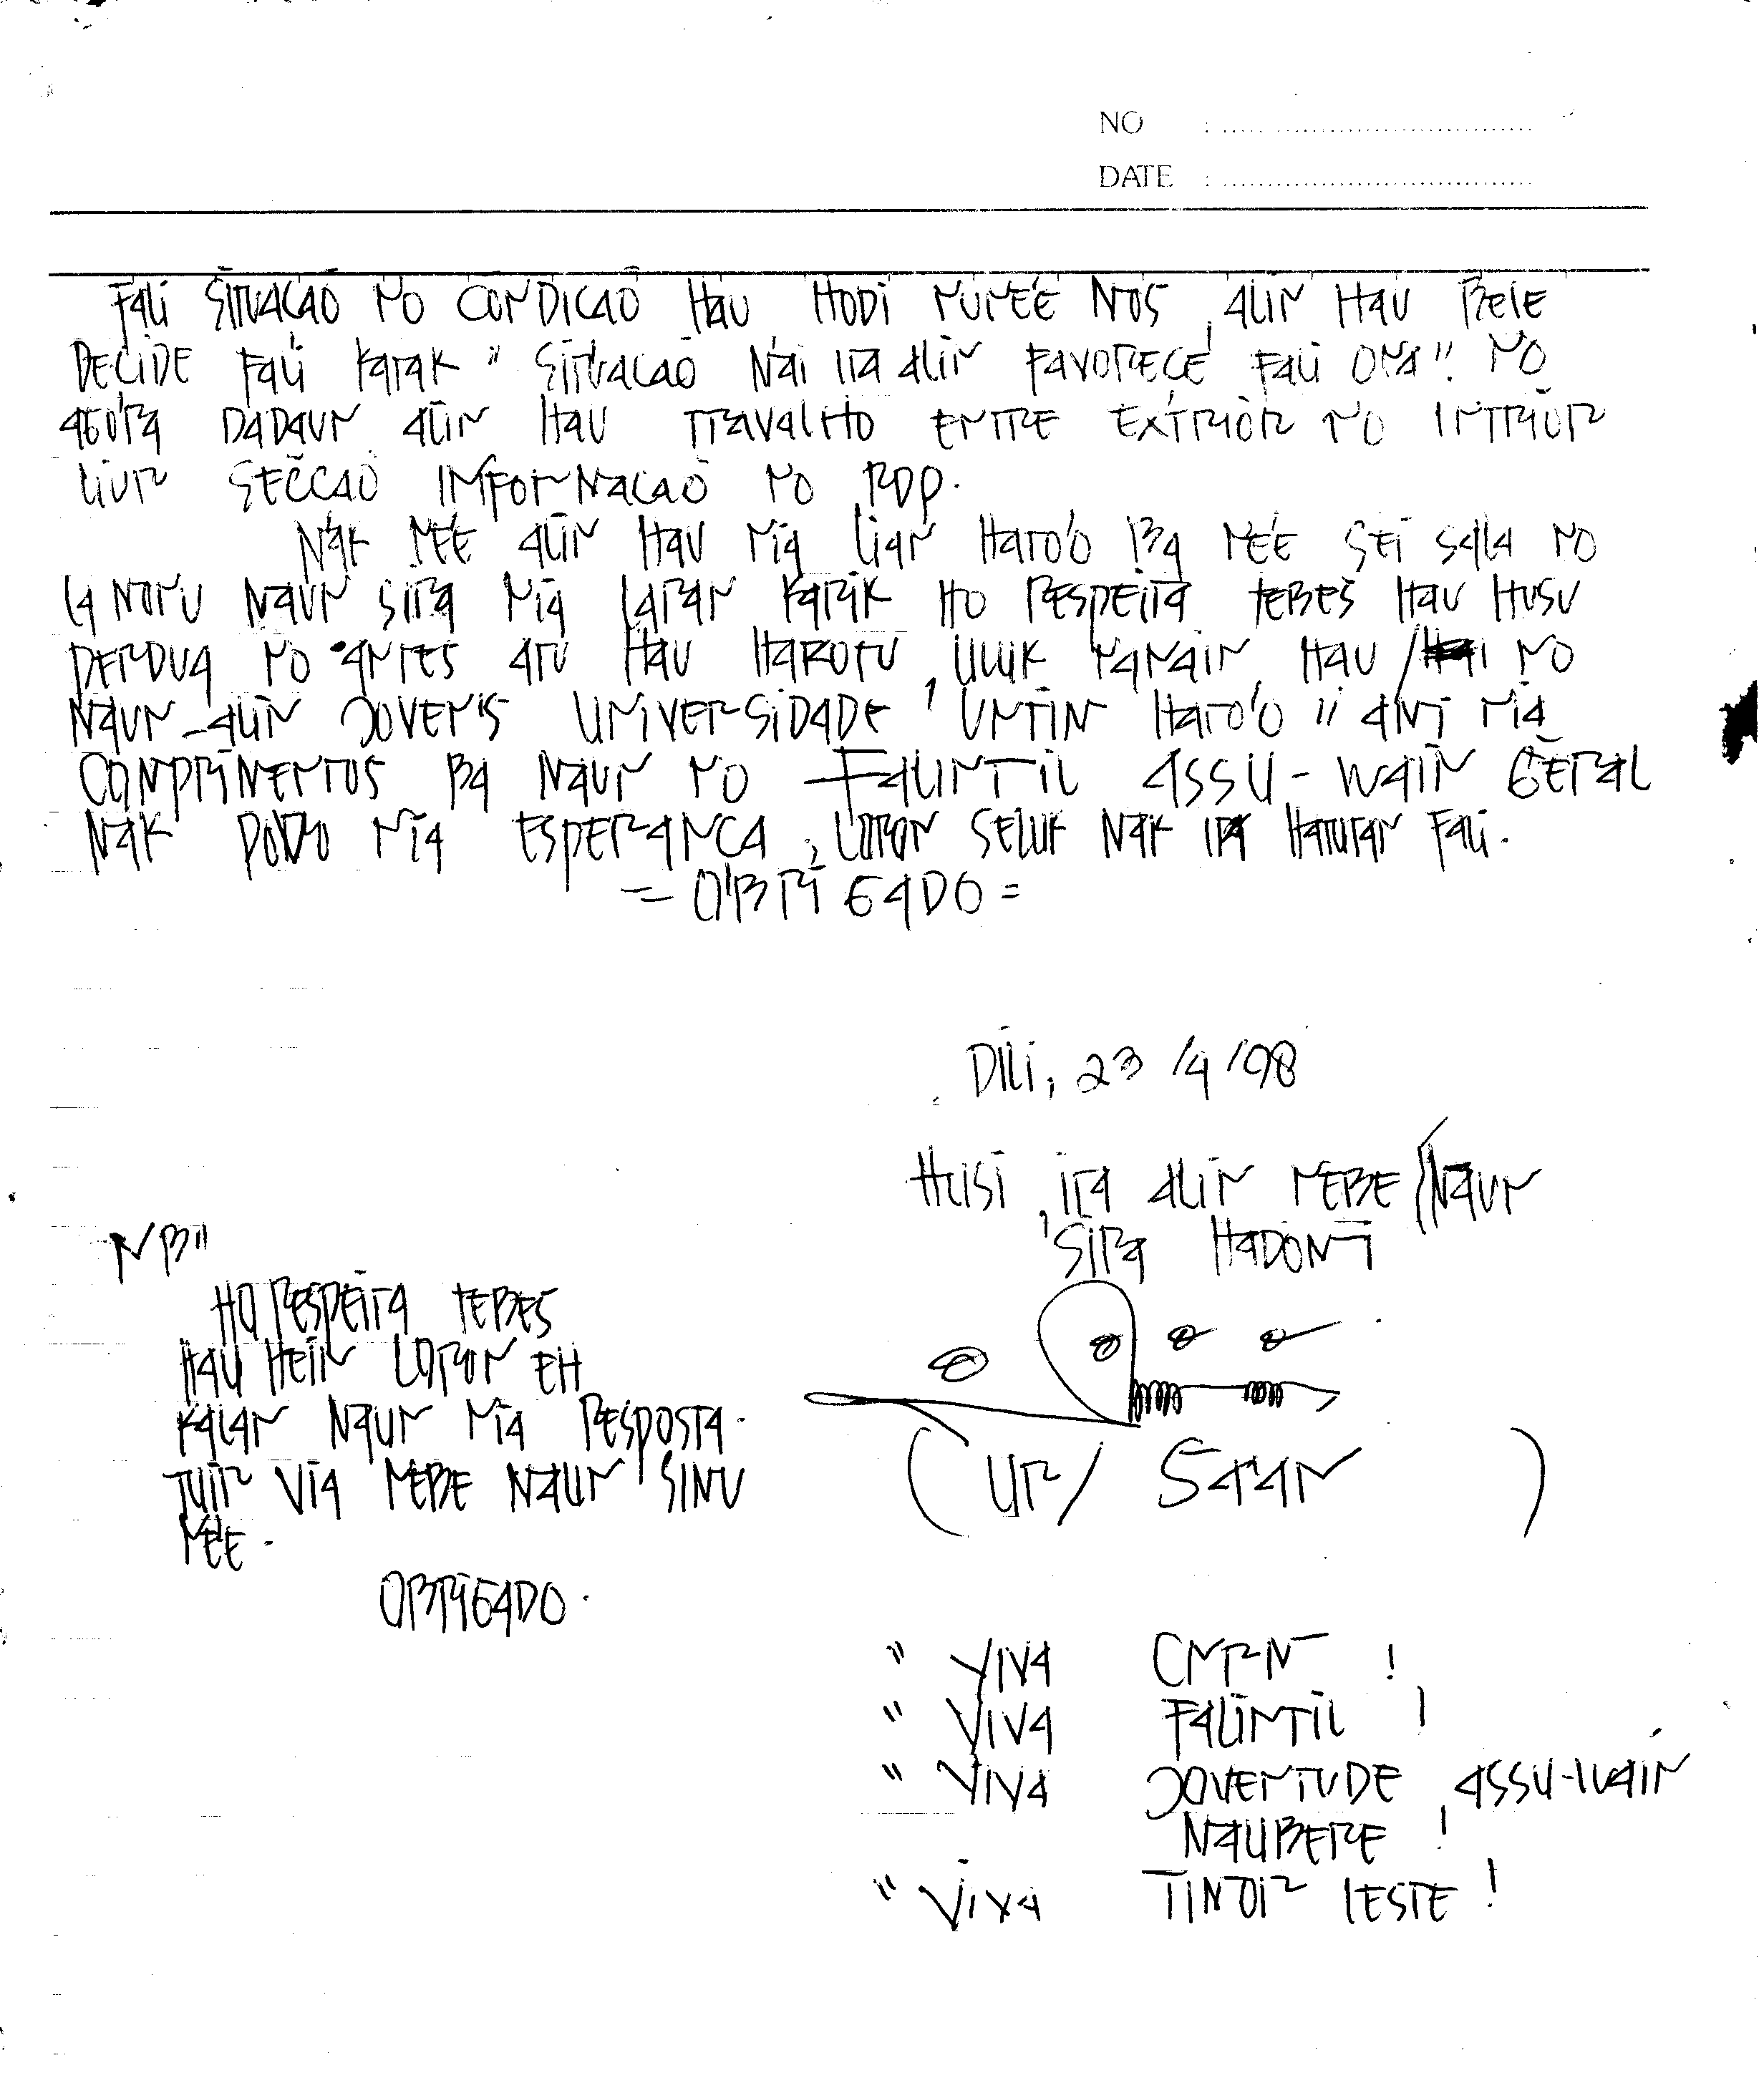 NO : ................................
DATE : ................................
FALI SITUACAÕ NO CONDICAÕ HAU HODI NUNEÉ MOS, ALIN HAU BELE
DECIDE FALI KATAK " SITUACAÕ MAI ITA ALIN FAVORECE FALI ONA". NO
AGORA DADAUN ALIN HAU TRAVALHO ENTRE EXTRIÒR NO INTRIÒR
LIUR SECCAÕ IMFORMACAÕ NO RDP.
MAK NEÉ ALIN HAU NIA LIAN HATO'O BA NEÉ SEI SALA NO
LA MONU MAUN SIRA NIA LARAN KARIK HO RESPEITA TEBES HAU HUSU
PERDUA NO ANTES ATU HAU HAKOTU, ULUK NANAIN, HAU NO
MAUN-ALIN JOVENS UNIVERSIDADE, UNTIM HATO'O " AMI NIA
COMPRIMENTOS BA MAUN NO FALINTIL ASSU-WAIN GERAL
MAK POVO NIA ESPERANCA, LORON SELUK MAK ITA HATUTAN FALI.
= OBRIGADO =
DILI, 23/4/98
HUSI, ITA ALIN NEBE MAUN
SIRA HADOMI
NB"
HO RESPEITA TEBES
HAU HEIN LORON EH
KALAN MAUN NIA RESPOSTA.
TUIR VIA NEBE MAUN SIMU
NEÉ.
OBRIGADO.
( UR/ SAAN )
" VIVA CNRM !
" VIVA FALINTIL !
" VIVA JOVENTUDE, ASSU-WAIN
MAUBERE !
" VIVA TIMOR LESTE !